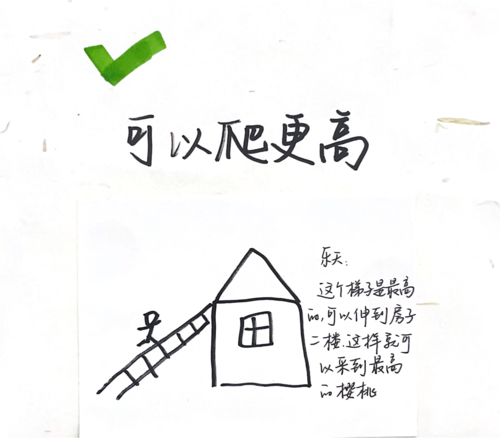 可以爬更高
乐天:
这个梯子是最高
的,可以伸到房子
二楼.这样就可
以采到最高
的樱桃